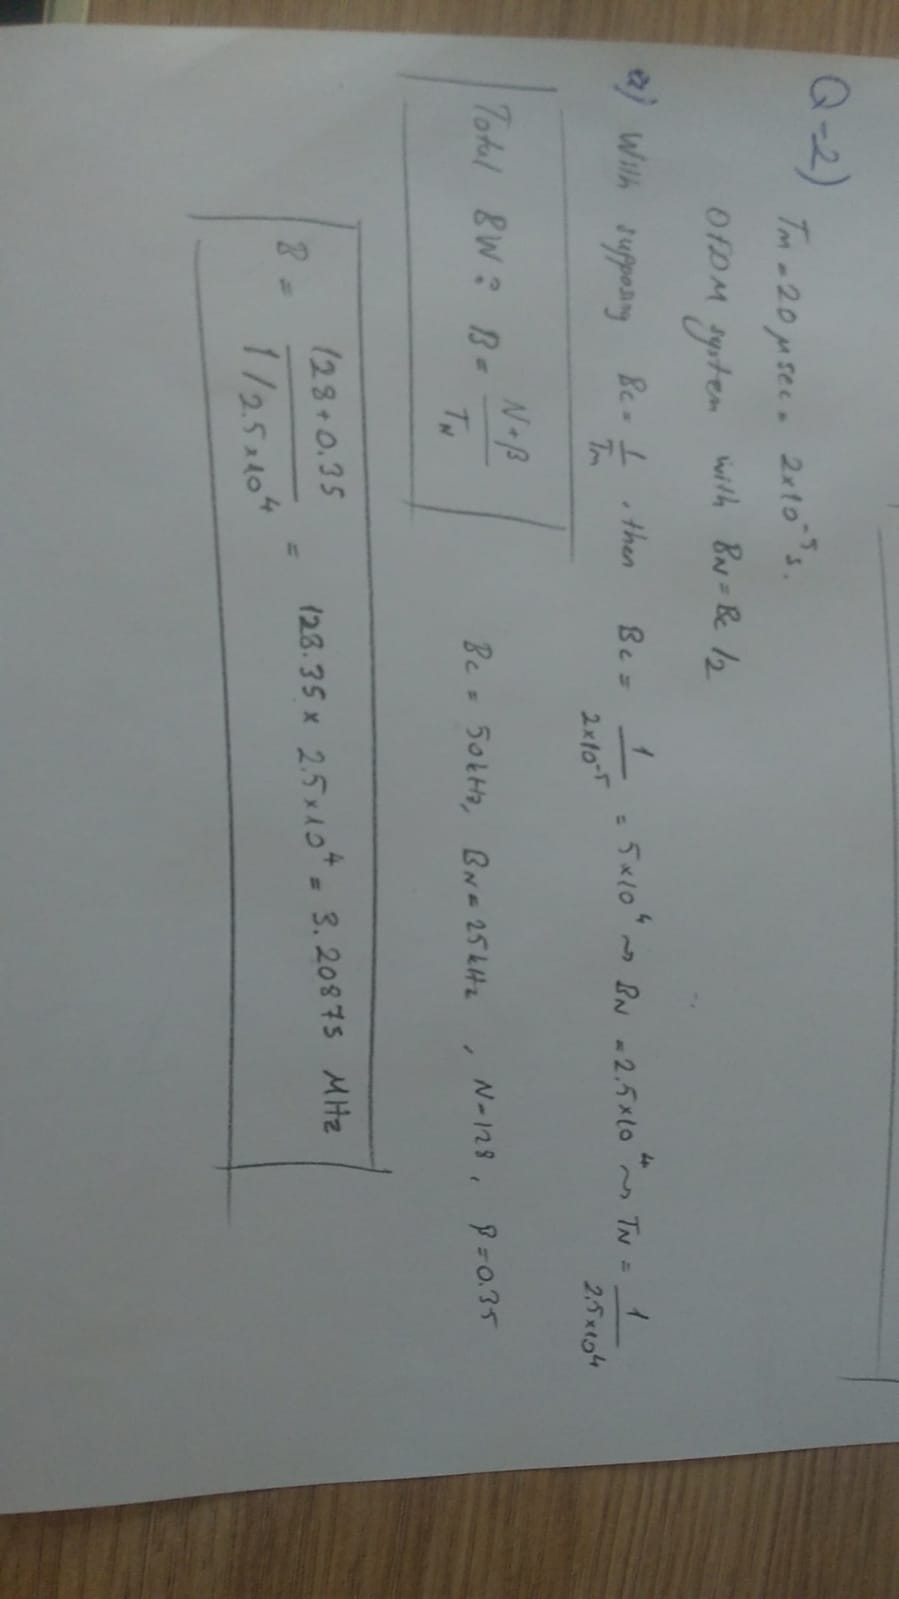 Q-2)
Tm = 20 μsec = 2x10⁻⁵ s.
OFDM system with BN = Bc /2
a) With supposing Bc = 1/Tm , then Bc = 1/2x10⁻⁵ = 5x10⁴ ⇝ BN = 2.5x10⁴ ⇝ TN = 1/2.5x10⁴
Total BW: B = N+β/TN
Bc = 50kHz, BN = 25kHz , N=128 , β=0.35
B = 128+0.35/1/2.5x10⁴ = 128.35 x 2.5x10⁴ = 3.20875 MHz